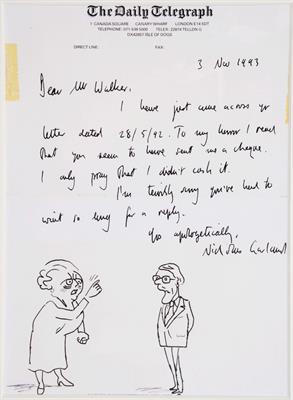 The Daily Telegraph
1 CANADA SQUARE CANARY WHARF LONDON E14 5DT
TELEPHONE: 071 538 5000 TELEX: 22874 TELLDN G
DX42657 ISLE OF DOGS
DIRECT LINE: FAX:
3 Nov 1993
Dear Mr Walker,
I have just come across yr
letter dated 28/5/92. To my horror I read
that you seem to have sent me a cheque.
I only pray that I didn't cash it.
I'm terribly sorry you've had to
wait so long for a reply.
Yrs apologetically,
Nicholas Garland